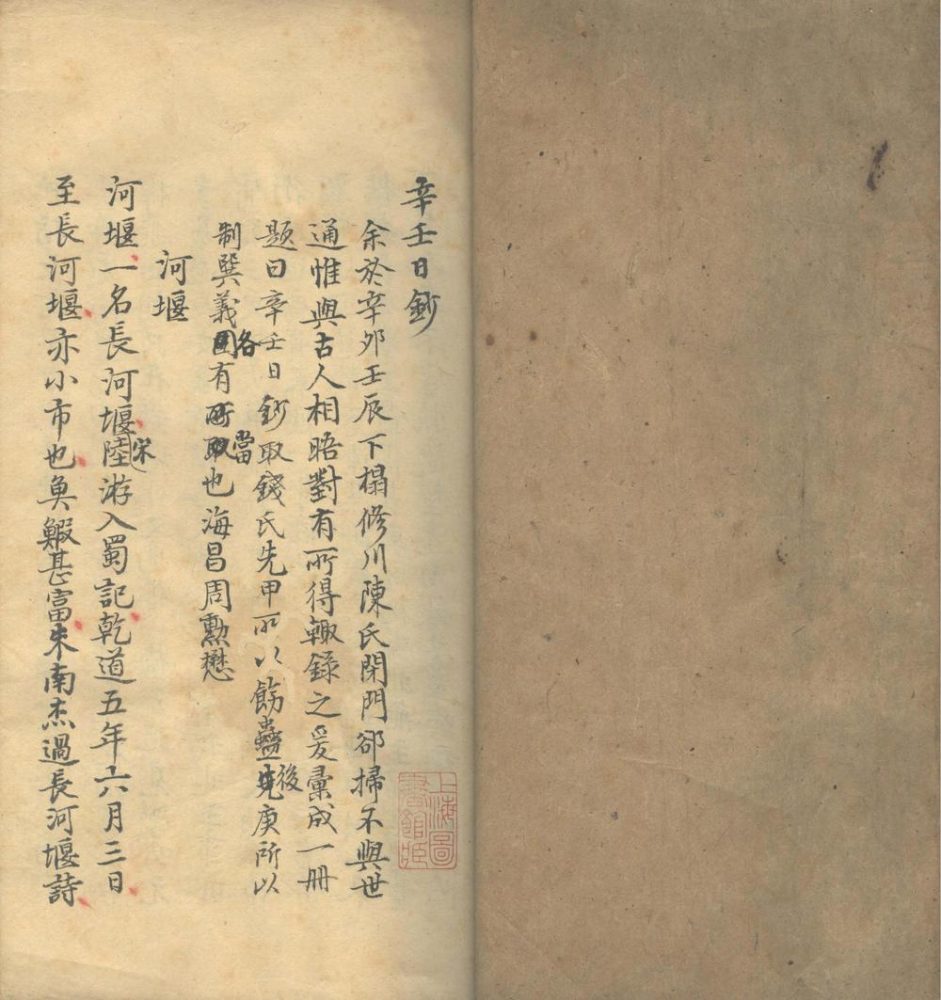 辛壬日鈔
余於辛卯壬辰下榻修川陳氏閉門卻掃不與世
通惟與古人相晤對有所得輙錄之爰彙成一冊
題曰辛壬日鈔取錢氏先甲所以飭蠱後庚所以
制巽義各有當也海昌周勳懋
河堰
河堰一名長河堰宋陸游入蜀記乾道五年六月三日
至長河堰亦小市也魚鰕甚富朱南杰過長河堰詩
上海圖
書館藏